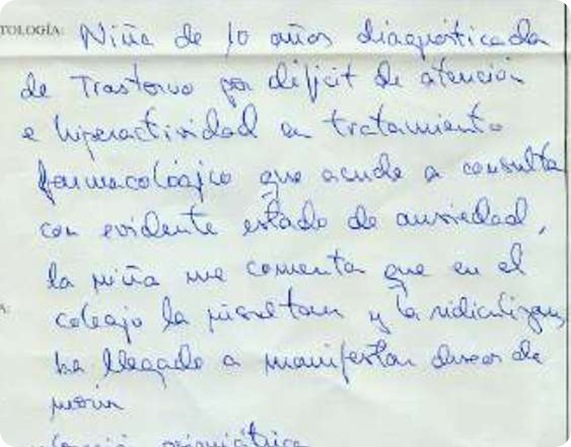 TOLOGÍA: Niña de 10 años diagnosticada
de Trastorno por déficit de atención
e hiperactividad en tratamiento
farmacológico que acude a consulta
con evidente estado de ansiedad,
la niña me comenta que en el
A: colegio la insultan y la ridiculizan,
ha llegado a manifestar deseos de
morir
psiquiátrica